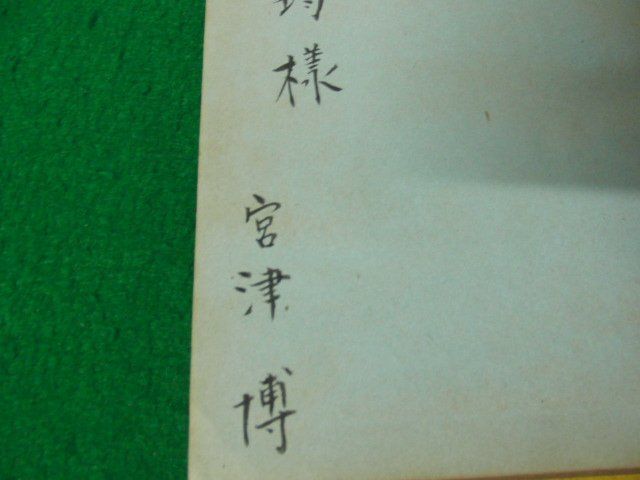 様
宮津 博